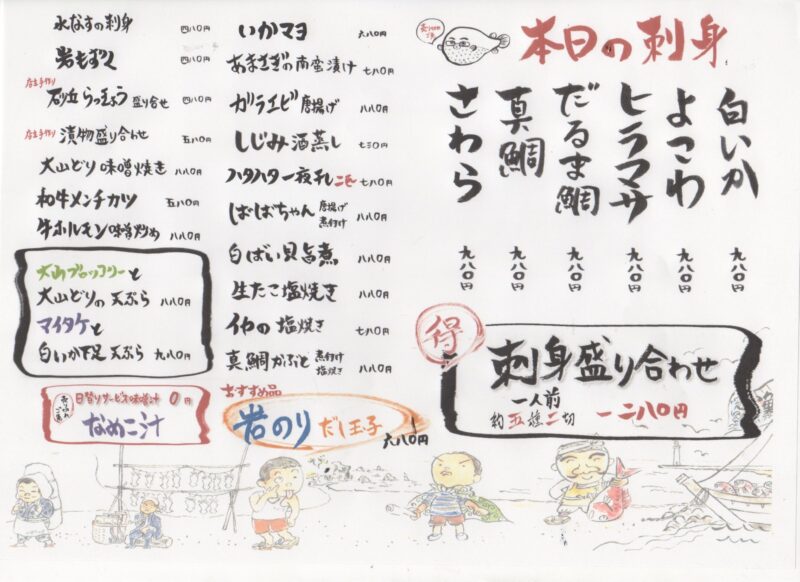 本日の刺身
白いか 九八〇円
よこわ 九八〇円
ヒラマサ 九八〇円
だるま鯛 九八〇円
真鯛 九八〇円
さわら 九八〇円
得
刺身盛り合わせ
一人前
約五種二切
一二八〇円
いかマヨ 六八〇円
あまさぎの南蛮漬け 七八〇円
ガラエビ 唐揚げ 八八〇円
しじみ酒蒸し 七三〇円
ハタハタ一夜干し 二匹 七八〇円
ばばちゃん 唐揚げ 煮付け 八八〇円
白ばい貝旨煮 八八〇円
生たこ塩焼き 八八〇円
イカの塩焼き 七八〇円
真鯛かぶと 煮付け 塩焼き 八八〇円
おすすめ品
岩のり だし玉子 六八〇円
水なすの刺身 四八〇円
岩もずく
店主手作り
砂丘らっきょう 盛り合せ 四八〇円
店主手作り
漬物盛り合わせ 五八〇円
大山どり味噌焼き 八八〇円
和牛メンチカツ 五八〇円
牛ホルモン味噌炒め 八八〇円
大山ブロッコリーと
大山どりの天ぷら 八八〇円
マイタケと
白いか下足天ぷら 九八〇円
売り切れご免
日替りサービス味噌汁 0円
なめこ汁